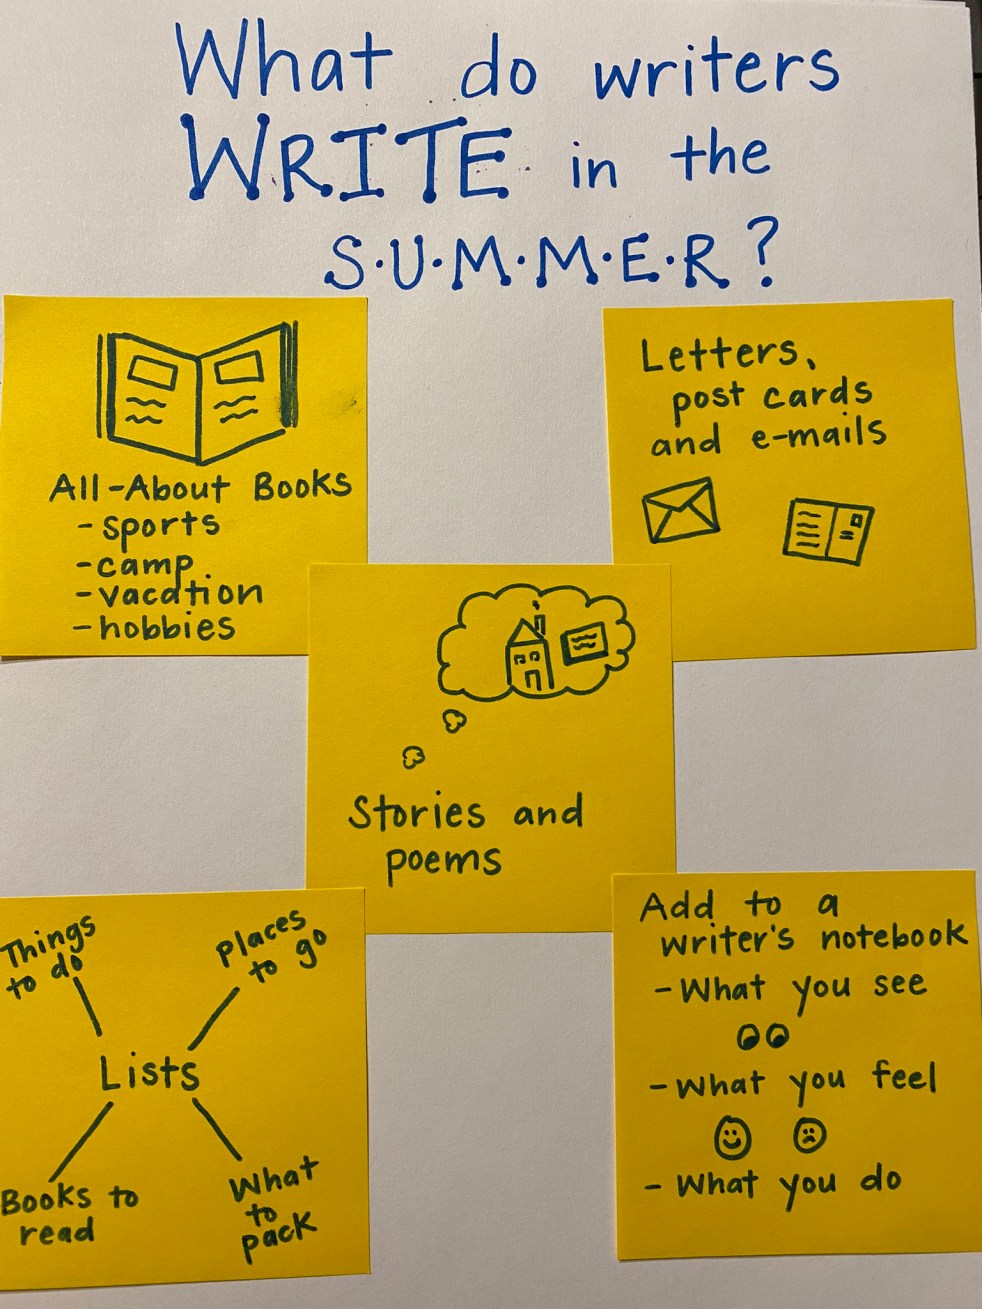 What do writers
WRITE in the
S·U·M·M·E·R?
All-About Books
- sports
- camp
- vacation
- hobbies
Letters,
post cards
and e-mails
Stories and
poems
Things
to do
Places
to go
Lists
Books to
read
What
to
pack
Add to a
writer's notebook
- What you see
- What you feel
- What you do